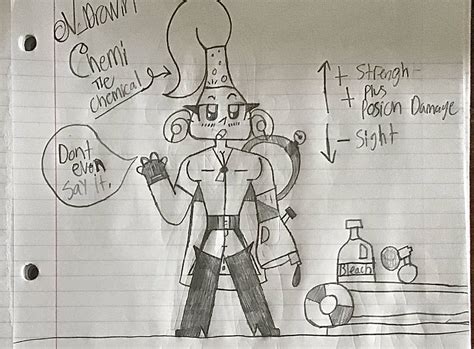 @V_Drawin
Chemi
The
Chemical
+ Strengh
+ Plus
Posion Damage
- Sight
Dont
even
Say it.
Bleach